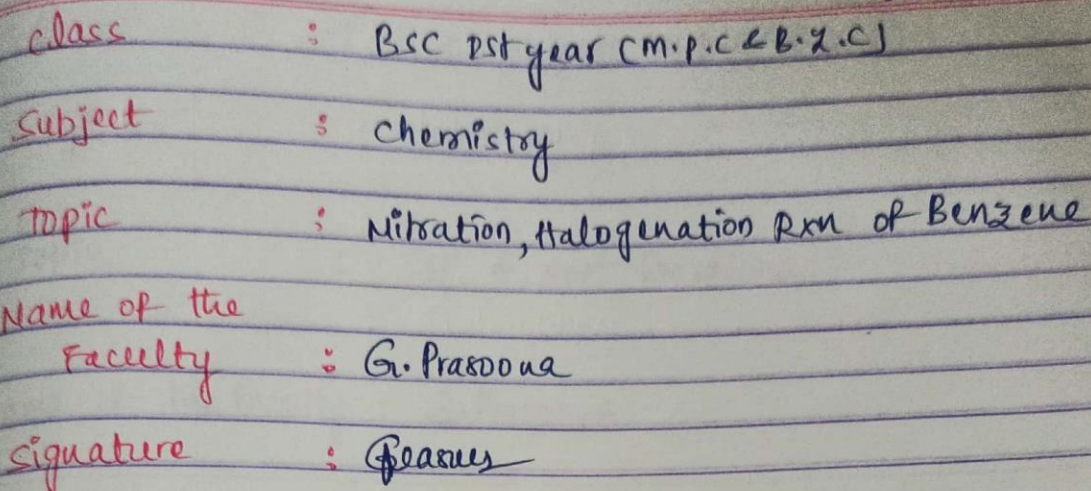 class : BSC Ist year (M.P.C & B.Z.C)
Subject : Chemistry
Topic : Nitration, Halogenation Rxn of Benzene
Name of the
Faculty : G. Prasoona
Signature :